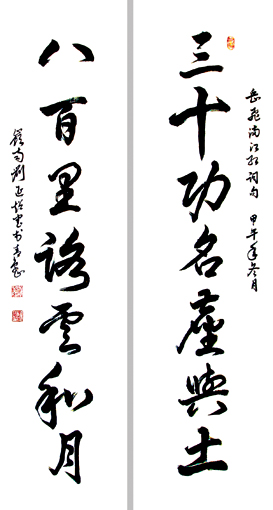 岳飛滿江紅詞句 甲午年冬月
三十功名塵與土
八百里路雲和月